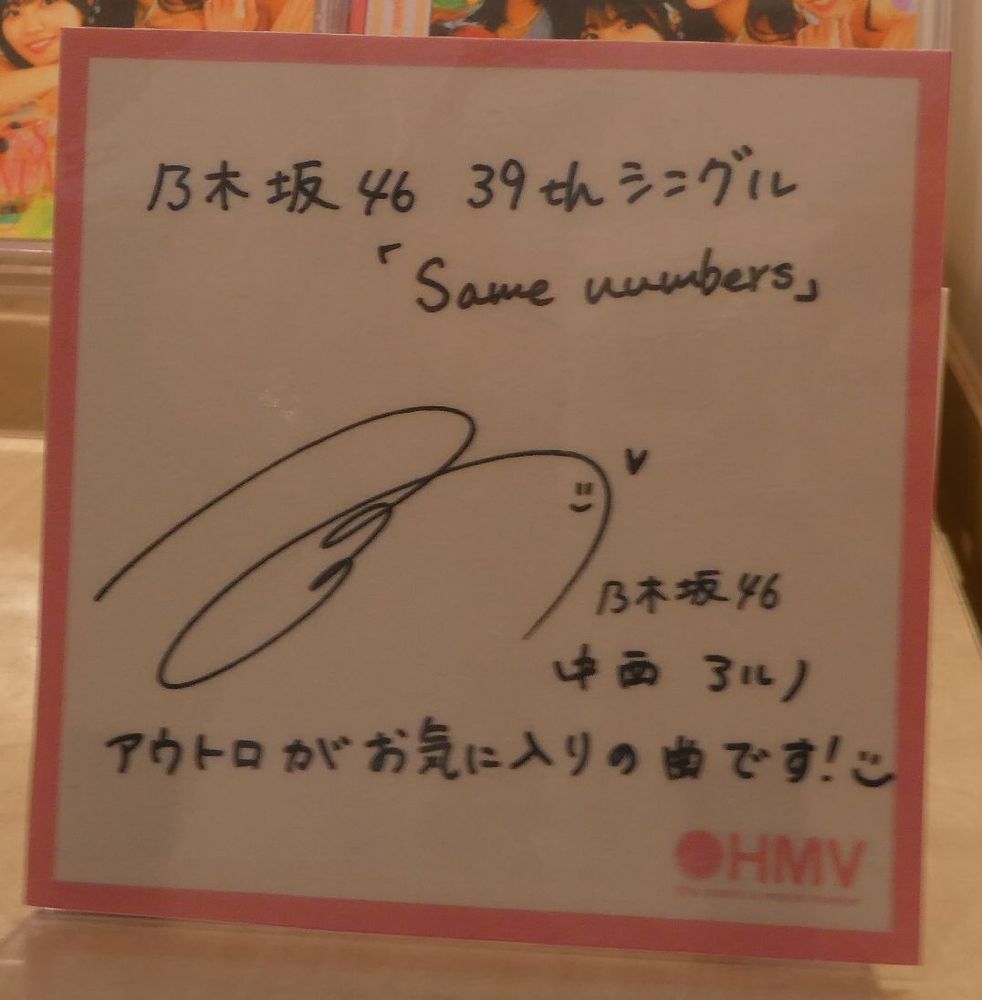 乃木坂46 39thシングル
「Same numbers」
乃木坂46
中西 アルノ
アウトロがお気に入りの曲です!
HMV